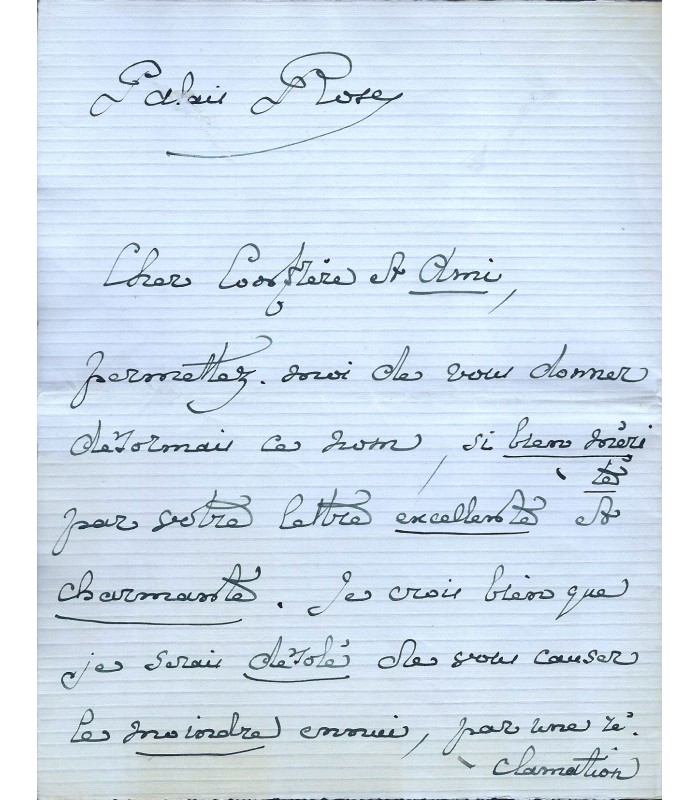 Palais Rose
Cher Confrère et Ami,
permettez-moi de vous donner
désormais ce nom, si bien méri
té
par votre lettre excellente et
charmante. Je crois bien que
je serais désolé de vous causer
le moindre ennui, par une ré-
clamation